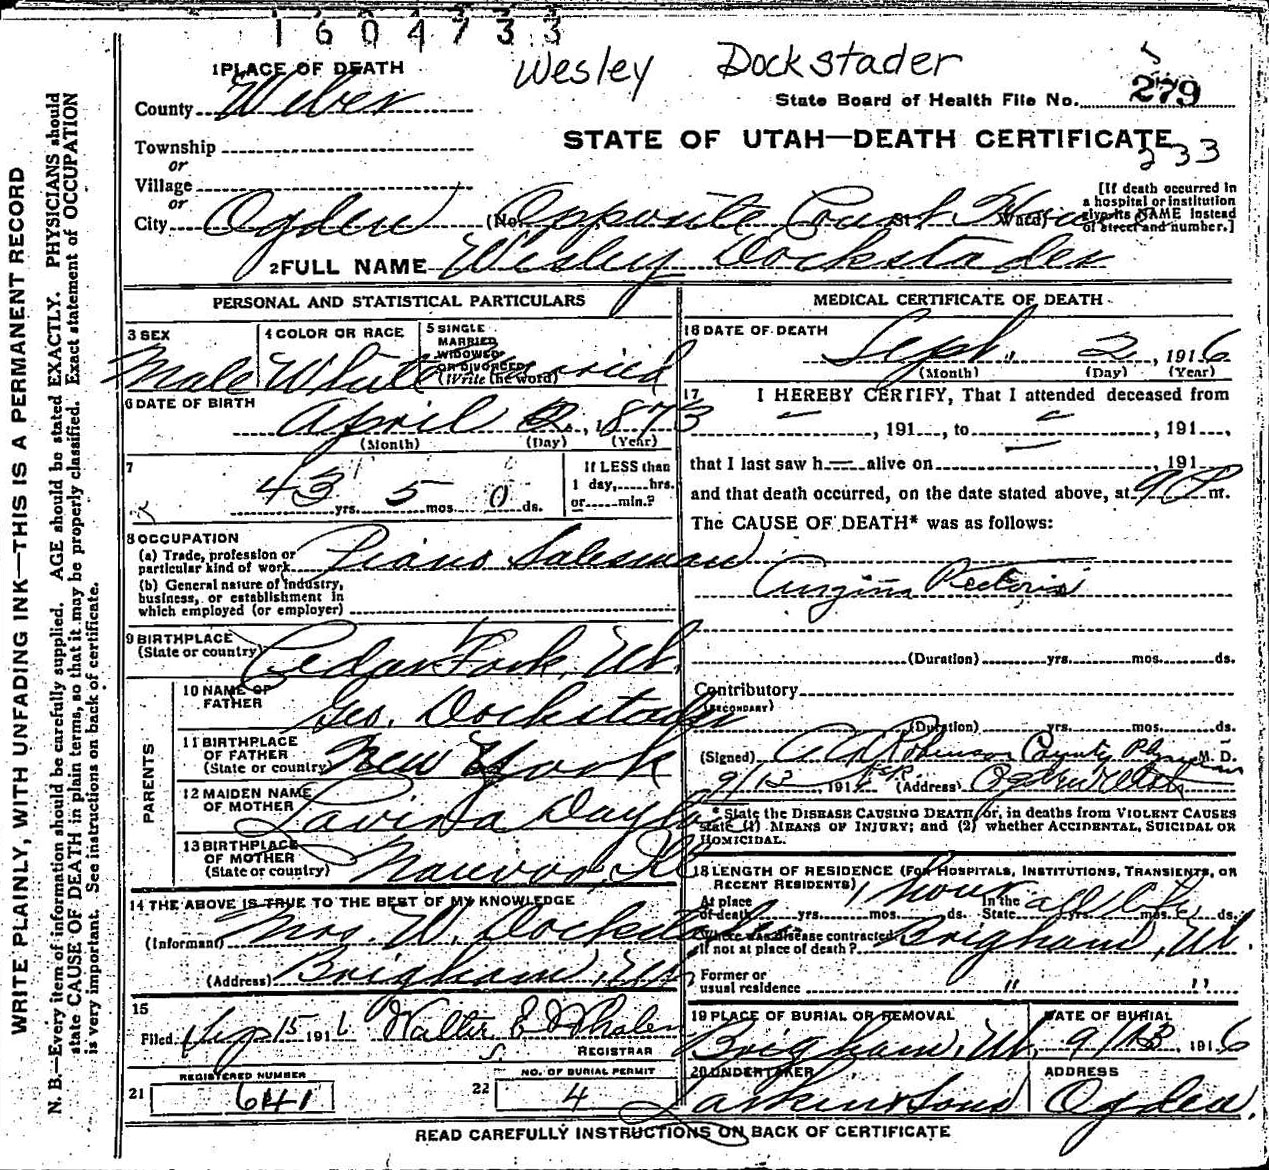 1604733
Wesley Dockstader
1 PLACE OF DEATH
County Weber
State Board of Health File No. 279
STATE OF UTAH—DEATH CERTIFICATE
233
Township
or
Village
or
City Ogden (No. Opposite Court House St. Ward)
[If death occurred in
a hospital or institution
give its NAME instead
of street and number.]
2 FULL NAME Wesley Dockstader
PERSONAL AND STATISTICAL PARTICULARS
3 SEX Male
4 COLOR OR RACE White
5 SINGLE
MARRIED
WIDOWED
OR DIVORCED
(Write the word) Married
6 DATE OF BIRTH April 2, 1873
(Month) (Day) (Year)
7
43 yrs. 5 mos. 0 ds.
If LESS than
1 day, hrs.
or min.?
8 OCCUPATION
(a) Trade, profession or
particular kind of work Piano Salesman
(b) General nature of industry,
business, or establishment in
which employed (or employer)
9 BIRTHPLACE
(State or country) Cedar Fork, Ut.
PARENTS
10 NAME OF
FATHER Geo. Dockstader
11 BIRTHPLACE
OF FATHER
(State or country) New York
12 MAIDEN NAME
OF MOTHER Lavina
13 BIRTHPLACE
OF MOTHER
(State or country) Nauvoo, Ill
14 THE ABOVE IS TRUE TO THE BEST OF MY KNOWLEDGE
(Informant) Mrs. W. Dockstader
(Address) Brigham, Ut.
15
Filed Sep 15 1916 Walter E Whalen
REGISTRAR
REGISTERED NUMBER
21 641
NO. OF BURIAL PERMIT
22 4
MEDICAL CERTIFICATE OF DEATH
16 DATE OF DEATH
Sept. 2, 1916
(Month) (Day) (Year)
17 I HEREBY CERTIFY, That I attended deceased from
, 191 , to , 191 ,
that I last saw h alive on , 191
and that death occurred, on the date stated above, at 9 P m.
The CAUSE OF DEATH* was as follows:
Angina Pectoris
(Duration) yrs. mos. ds.
Contributory
(SECONDARY)
(Duration) yrs. mos. ds.
(Signed) Robinson County Physician M. D.
9/13, 1916 (Address) Ogden Utah
* State the DISEASE CAUSING DEATH, or, in deaths from VIOLENT CAUSES
state (1) MEANS OF INJURY; and (2) whether ACCIDENTAL, SUICIDAL OR
HOMICIDAL.
18 LENGTH OF RESIDENCE (FOR HOSPITALS, INSTITUTIONS, TRANSIENTS, OR
RECENT RESIDENTS)
At place
of death yrs. mos. ds. 1 hour In the
State yrs. mos. ds. all life
Where was disease contracted
if not at place of death? Brigham, Ut.
Former or
usual residence " "
19 PLACE OF BURIAL OR REMOVAL
Brigham, Ut.
DATE OF BURIAL
9/13, 1916
20 UNDERTAKER
Larkin & Sons
ADDRESS
Ogden.
READ CAREFULLY INSTRUCTIONS ON BACK OF CERTIFICATE
WRITE PLAINLY, WITH UNFADING INK—THIS IS A PERMANENT RECORD
N. B.—Every item of information should be carefully supplied. AGE should be stated EXACTLY. PHYSICIANS should
state CAUSE OF DEATH in plain terms, so that it may be properly classified. Exact statement of OCCUPATION
is very important. See instructions on back of certificate.